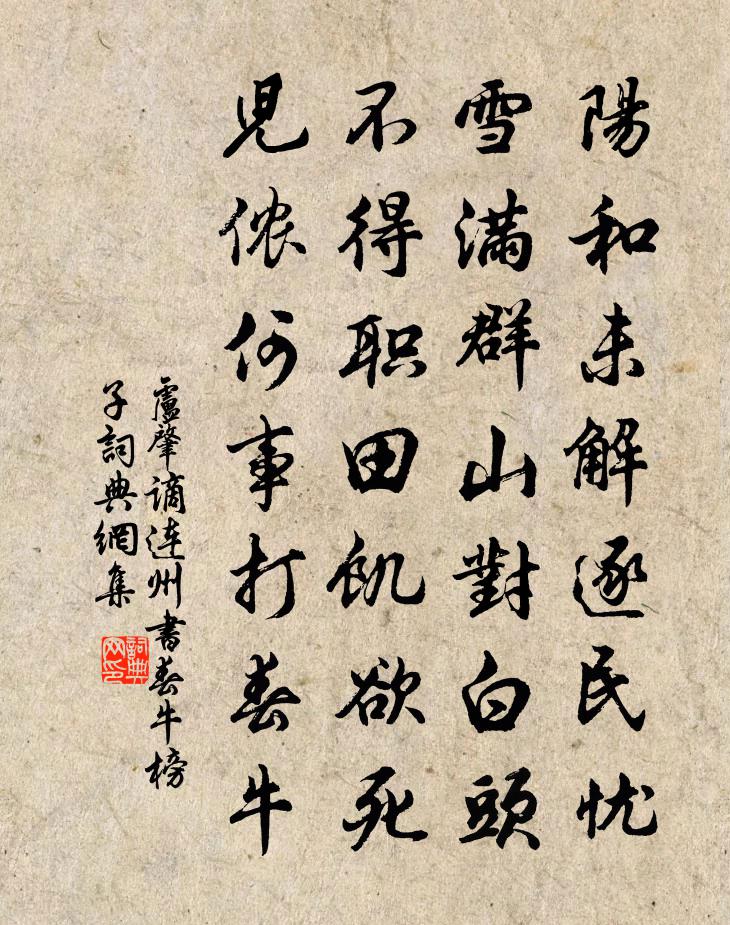 陽和未解逐民忧
雪滿群山對白頭
不得职田飢欲死
児侬何事打春牛
盧肇谪连州書春牛榜
子詞典網集
詞典网印